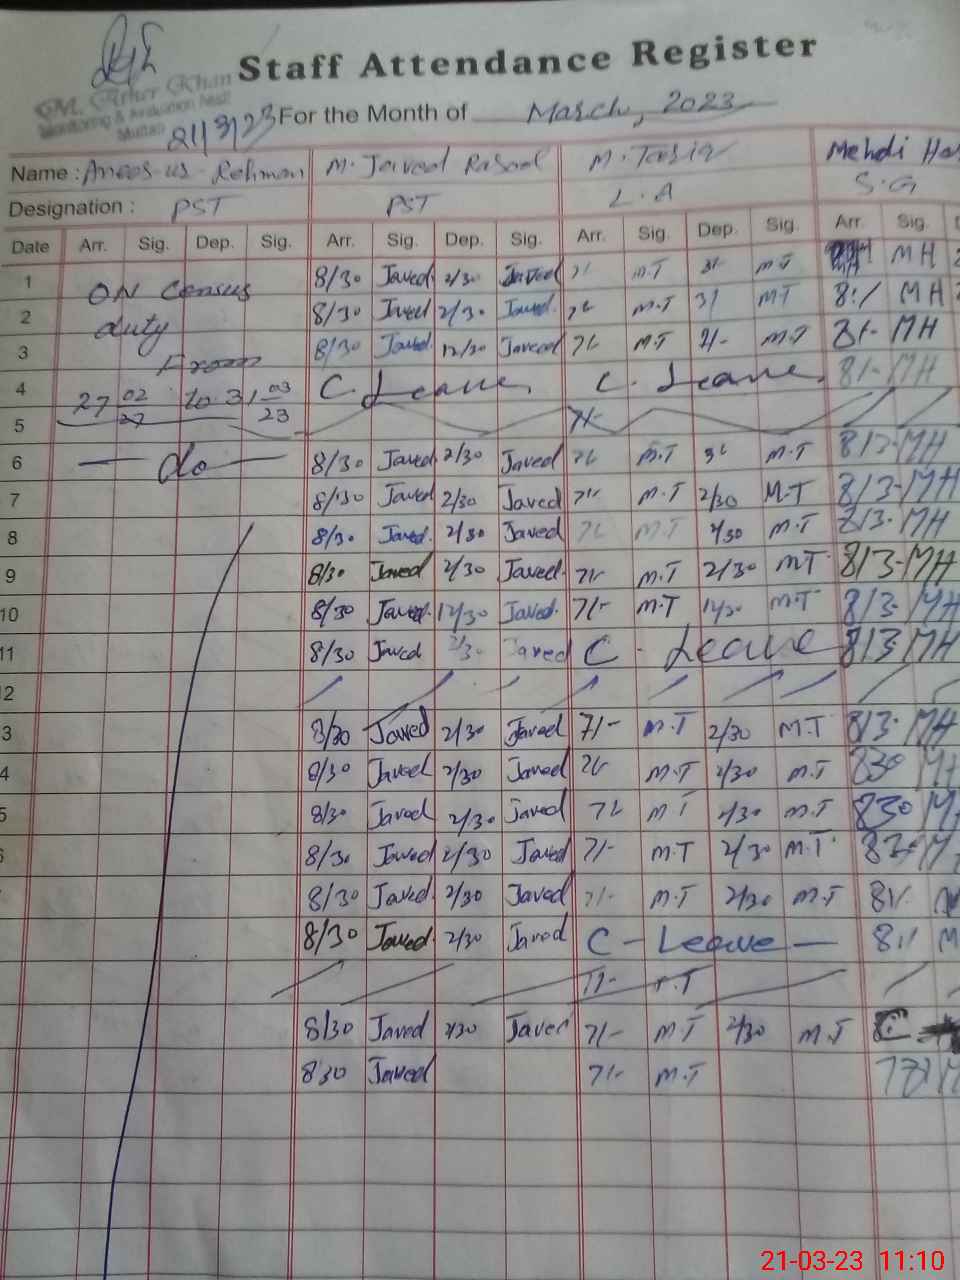 Staff Attendance Register
M. Ather Khan
Monitoring & Evaluation Asstt
Multan
21/3/23
For the Month of March, 2023
Name : Anees-us-Rehman M. Javeed Rasool M. Tariq Mehdi Has
Designation : PST PST L.A S.G
Date Arr. Sig. Dep. Sig. Arr. Sig. Dep. Sig. Arr. Sig. Dep. Sig. Arr. Sig. D
1 ON Census 8/30 Javed 2/30 Javed 7/- M.T 3/- M.T MH
2 duty 8/30 Javed 2/30 Javed 7/- M.T 3/ M.T 8:/ MH
3 From 8/30 Javed 12/30 Javeed 7/- M.T M.T 8/- MH
4 27 02 to 31 03 23 C. Leave C. Leave 8/- MH
5 7/-
6 — do — 8/30 Javed 2/30 Javed 7/- M.T 3/- M.T 8/3- MH
7 8/30 Javed 2/30 Javed 7/- M.T 2/30 M.T 8/3- MH
8 8/30 Javed 2/30 Javed 7/- M.T 2/30 M.T 8/3- MH
9 8/30 Javed 2/30 Javed 7/- M.T 2/30 M.T 8/3- MH
10 8/30 Javed 12/30 Javed 7/- M.T 12/30 M.T 8/3- MH
11 8/30 Javed 2/30 Javed C - Leave 8/3- MH
2
3 8/30 Javed 2/30 Javed 7/- M.T 2/30 M.T 8/3- MH
4 8/30 Javed 2/30 Javed 7/- M.T 2/30 M.T 830 MH
5 8/30 Javed 2/30 Javed 7/- M.T 2/30 M.T 830
6 8/30 Javed 2/30 Javed 7/- M.T 2/30 M.T
8/30 Javed 2/30 Javed 7/- M.T 2/30 M.T 8/-
8/30 Javed 2/30 Javed C - Leave — 8/- M
7/-
8/30 Javed 2/30 Javed 7/- M.T 2/30 M.T C
830 Javed 7/- M.T
21-03-23 11:10